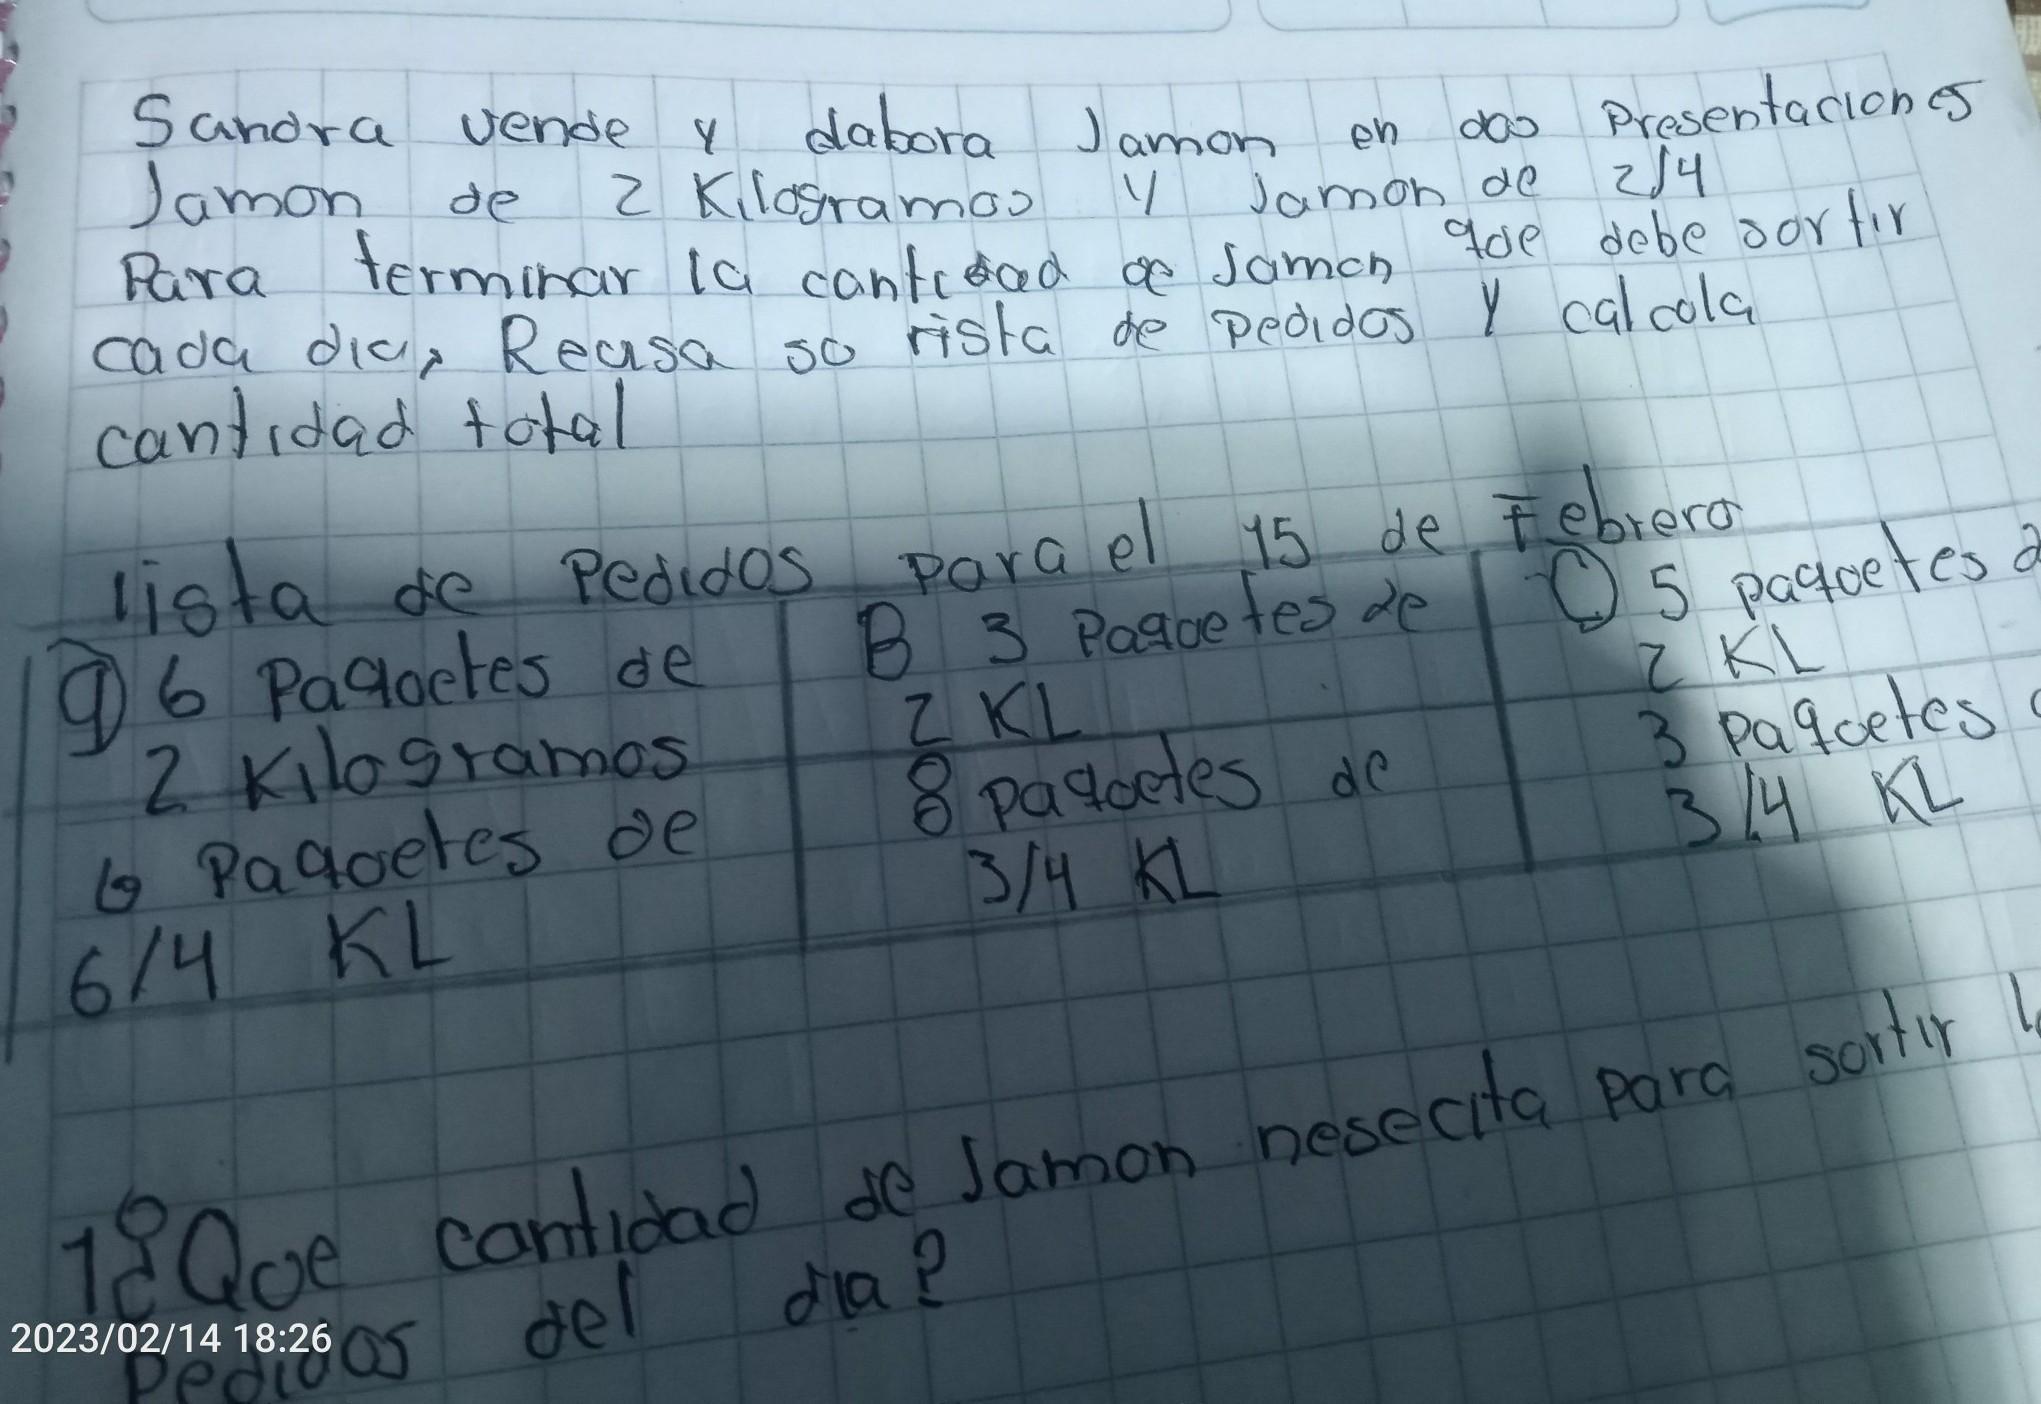 Sandra vende y elabora Jamon en dos Presentaciones
Jamon de 2 Kilogramos y Jamon de 2/4
Para terminar la cantidad de Jamon que debe sortir
cada dia, Reusa so rista de pedidos y calcola
cantidad total
lista de Pedidos para el 15 de Febrero
a) 6 Paqoetes de
2 Kilogramos
6 Paqoetes de
6/4 KL
B 3 Paqoetes de
2 KL
8 paqoetes de
3/4 KL
C) 5 paqoetes d
2 KL
3 paqoetes
3/4 KL
1¿Qoe cantidad de Jamon nesecita para sortir
pedidos del dia?
2023/02/14 18:26